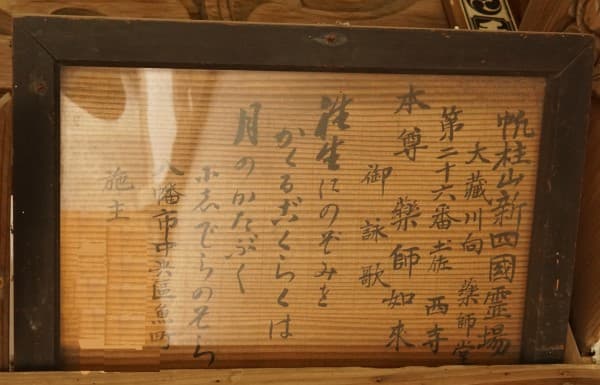 帆柱山新四國霊場
大藏川向 藥師堂
第二十六番土佐 西寺
本尊 藥師如來
御詠歌
往生にのぞみを
かくるごくらくは
月のかたぶく
にしでらのそら
八幡市中央區魚町
施主